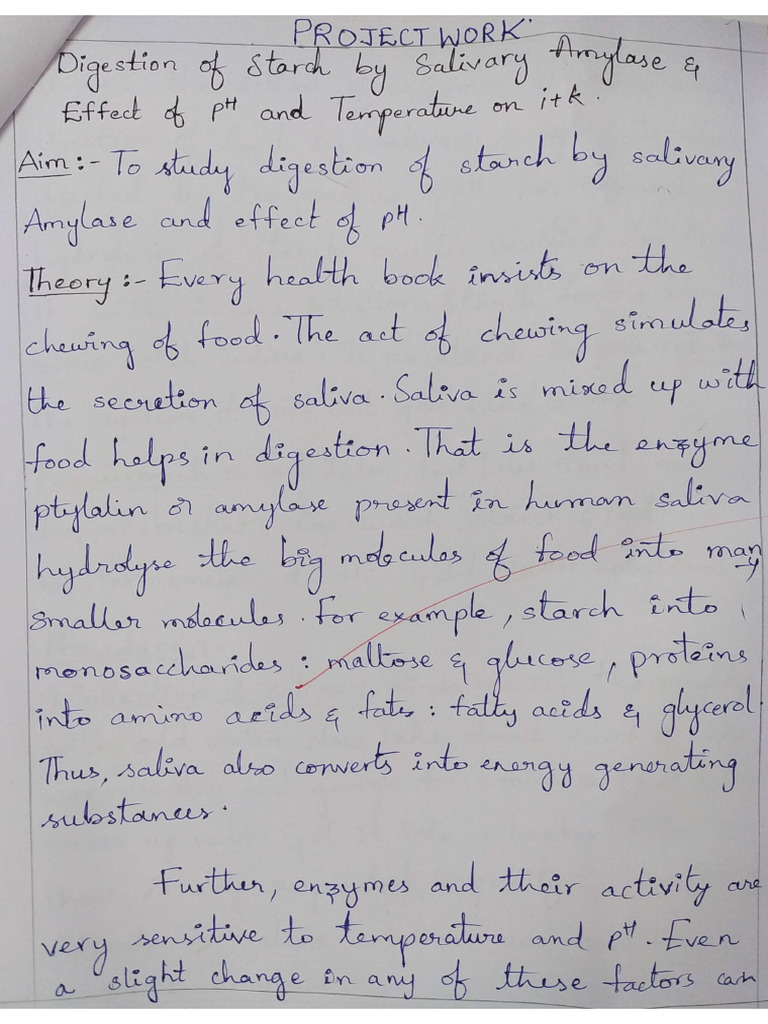 PROJECT WORK.
Digestion of Starch by Salivary Amylase &
Effect of pH and Temperature on it k.
Aim :- To study digestion of starch by salivary
Amylase and effect of pH.
Theory :- Every health book insists on the
chewing of food. The act of chewing simulates
the secretion of saliva. Saliva is mixed up with
food helps in digestion. That is the enzyme
ptylalin or amylase present in human saliva
hydrolyse the big molecules of food into many
smaller molecules. For example, starch into
monosaccharides : maltose & glucose, proteins
into amino acids & fats : fatty acids & glycerol.
Thus, saliva also converts into energy generating
substances.
Further, enzymes and their activity are
very sensitive to temperature and pH. Even
a slight change in any of these factors can